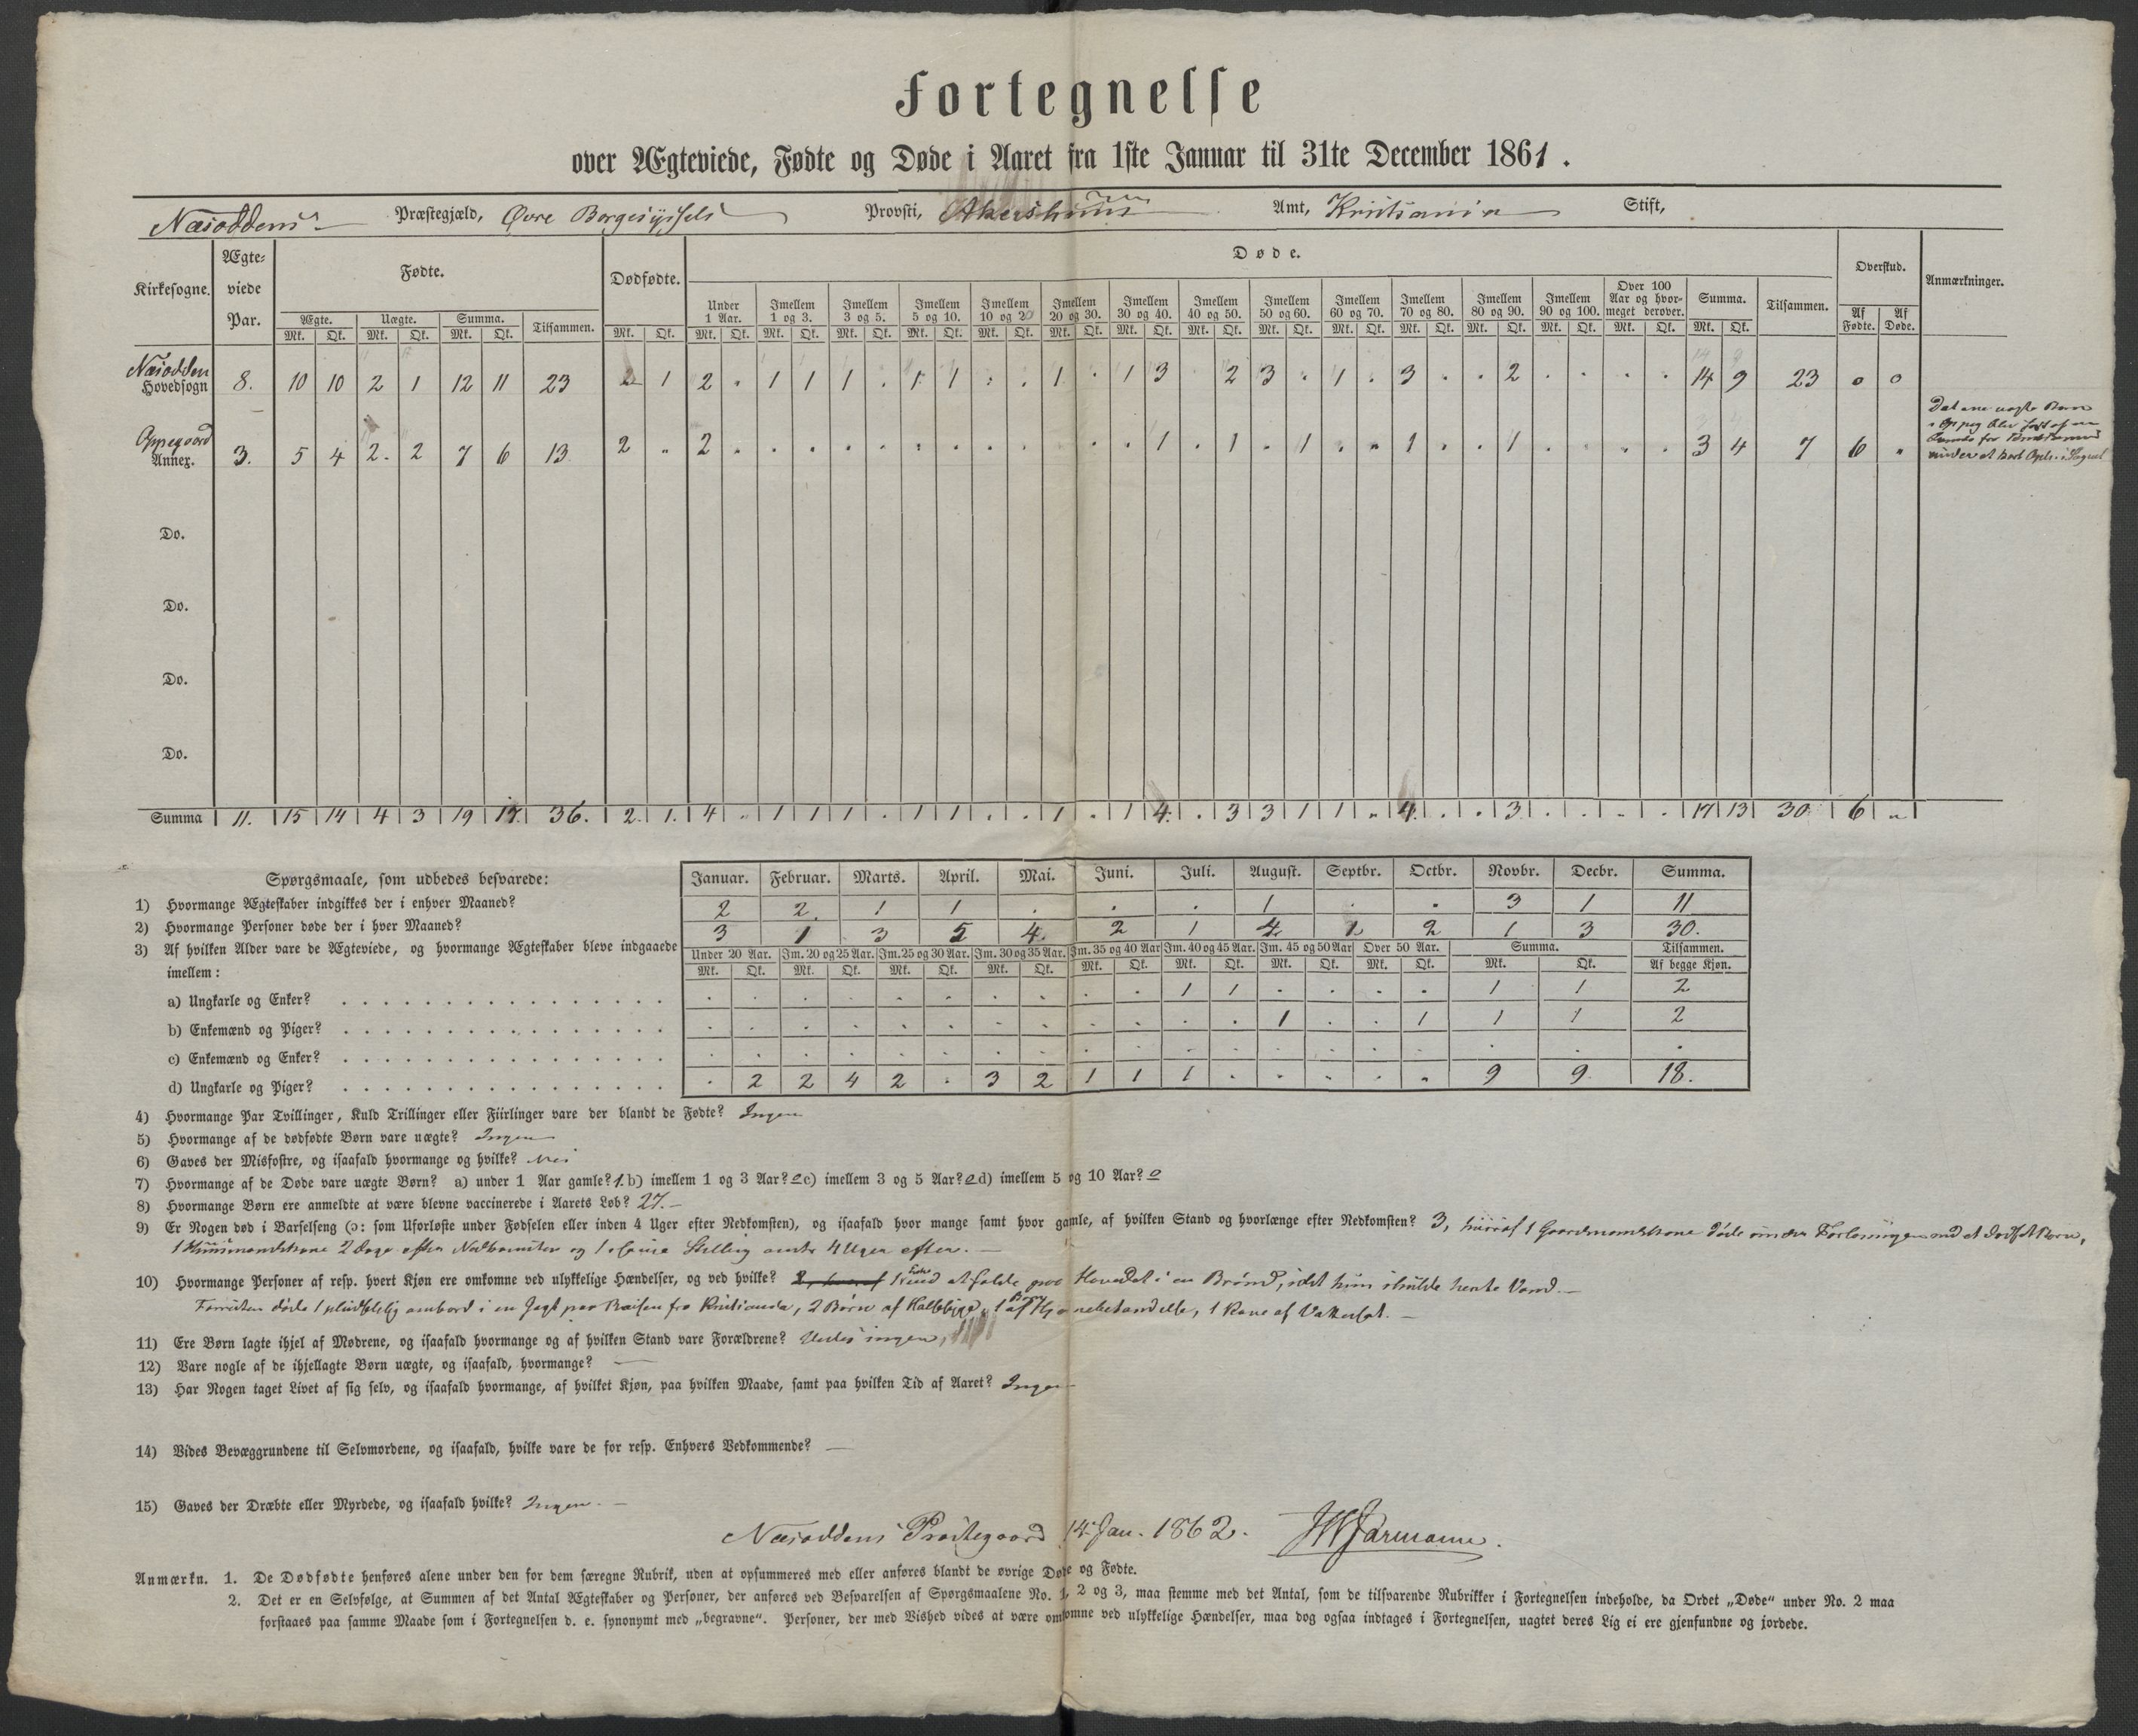 Fortegnelse
over Ægteviede, Fødte og Døde i Aaret fra 1ste Januar til 31te December 1861.
Næsoddens Præstegjæld, Øvre Borgesyssels Provsti, Akershuus Amt, Kristiania Stift,
Kirkesogne. Ægteviede Par. Fødte. Dødfødte. Døde. Overskud. Anmærkninger.
Under 1 Aar. Imellem 1 og 3. Imellem 3 og 5. Imellem 5 og 10. Imellem 10 og 20 Imellem 20 og 30. Imellem 30 og 40. Imellem 40 og 50. Imellem 50 og 60. Imellem 60 og 70. Imellem 70 og 80. Imellem 80 og 90. Imellem 90 og 100. Over 100 Aar og hvormeget derover. Summa. Tilsammen. Af Fødte. Af Døde.
Ægte. Uægte. Summa. Tilsammen.
Mk. Qk. Mk. Qk. Mk. Qk. Mk. Qk. Mk. Qk. Mk. Qk. Mk. Qk. Mk. Qk. Mk. Qk. Mk. Qk. Mk. Qk. Mk. Qk. Mk. Qk. Mk. Qk. Mk. Qk. Mk. Qk. Mk. Qk. Mk. Qk. Mk. Qk.
Næsodden Hovedsogn 8. 10 10 2 1 12 11 23 1 2 " 1 1 1 . 1 1 . . 1 . 1 3 . 2 3 . 1 . 3 . . 2 . . . . 14 9 23 0 0
Oppegaard Annex. 3. 5 4 2. 2 7 6 13 2 " 2 . . . . . . . . . . . . 1 . 1 . 1 . . 1 . . 1 . . . . 3 4 7 6 "
Do.
Do.
Do.
Do.
Summa 11. 15 14 4 3 19 17. 36. 2. 1. 4 " 1 1 1 . 1 1 . . 1 . 1 4. . 3 3 1 1 " 4. . . 3 . . . . 17 13 30 6 "
Spørgsmaale, som udbedes besvarede: Januar. Februar. Marts. April. Mai. Juni. Juli. August. Septbr. Octbr. Novbr. Decbr. Summa.
1) Hvormange Ægteskaber indgikkes der i enhver Maaned? 2 2. 1 1 . . . 1 . . 3 1 11
2) Hvormange Personer døde der i hver Maaned? 3 1 3 5 4. 2 1 4. 1. 2 1 3 30.
3) Af hvilken Alder vare de Ægteviede, og hvormange Ægteskaber bleve indgaaede imellem: Under 20 Aar. Im. 20 og 25 Aar. Im. 25 og 30 Aar. Im. 30 og 35 Aar. Im. 35 og 40 Aar Im. 40 og 45 Aar. Im. 45 og 50 Aar Over 50 Aar. Summa. Tilsammen.
Mk. Qk. Mk. Qk. Mk. Qk. Mk. Qk. Mk. Qk. Mk. Qk. Mk. Qk. Mk. Qk. Mk. Qk. Af begge Kjøn.
a) Ungkarle og Enker? . . . . . . . . . . 1 1 . . . . 1 1 2
b) Enkemænd og Piger? . . . . . . . . . . . . 1 . . 1 1 1 2
c) Enkemænd og Enker? . . . . . . . . . . . . . . . . . . .
d) Ungkarle og Piger? . 2 2 4 2 . 3 2 1 1 1 . . . . . 9 9. 18.
4) Hvormange Par Tvillinger, Kuld Trillinger eller Fiirlinger vare der blandt de Fødte? Ingen
5) Hvormange af de dødfødte Børn vare uægte? Ingen
6) Gaves der Misfostre, og isaafald hvormange og hvilke? Nei
7) Hvormange af de Døde vare uægte Børn? a) under 1 Aar gamle? 1. b) imellem 1 og 3 Aar? 0 c) imellem 3 og 5 Aar? 0 d) imellem 5 og 10 Aar? 0
8) Hvormange Børn ere anmeldte at være blevne vaccinerede i Aarets Løb? 27. —
9) Er Nogen død i Barselseng (ɔ: som Uforløste under Fødselen eller inden 4 Uger efter Nedkomsten), og isaafald hvor mange samt hvor gamle, af hvilken Stand og hvorlænge efter Nedkomsten? 3, hvoraf 1 Gaardmandskone døde under Forløsningen med et dødf. Barn,
1 Huusmandskone 2 dage efter Nedkomsten og 1 Stilling 4 Uger efter. —
10) Hvormange Personer af resp. hvert Kjøn ere omkomne ved ulykkelige Hændelser, og ved hvilke? at falde paa Hovedet i en Brønd, idet hun skulde hente Vand. —
Foruden døde 1 pludselig ombord i en Jagt paa Reisen fra Kristiania, 2 Børn af Halssyge, 1 Barn af Hjernebetændelse, 1 Kone af Vattersot. —
11) Ere Børn lagte ihjel af Mødrene, og isaafald hvormange og af hvilken Stand vare Forældrene? Vides ingen,
12) Vare nogle af de ihjellagte Børn uægte, og isaafald, hvormange? —
13) Har Nogen taget Livet af sig selv, og isaafald hvormange, af hvilket Kjøn, paa hvilken Maade, samt paa hvilken Tid af Aaret? Ingen
14) Vides Bevæggrundene til Selvmordene, og isaafald, hvilke vare de for resp. Enhvers Vedkommende? —
15) Gaves der Dræbte eller Myrdede, og isaafald hvilke? Ingen. —
Næsoddens Præstegaard 14. Jan. 1862.
Anmærkn. 1. De Dødfødte henføres alene under den for dem særegne Rubrik, uden at opsummeres med eller anføres blandt de øvrige Døde og Fødte.
2. Det er en Selvfølge, at Summen af det Antal Ægteskaber og Personer, der anføres ved Besvarelsen af Spørgsmaalene No. 1, 2 og 3, maa stemme med det Antal, som de tilsvarende Rubrikker i Fortegnelsen indeholde, da Ordet „Døde“ under No. 2 maa
forstaaes paa samme Maade som i Fortegnelsen d. e. synonymt med „begravne“. Personer, der med Vished vides at være omkomne ved ulykkelige Hændelser, maa dog ogsaa indtages i Fortegnelsen, uagtet deres Lig ei ere gjenfundne og jordede.